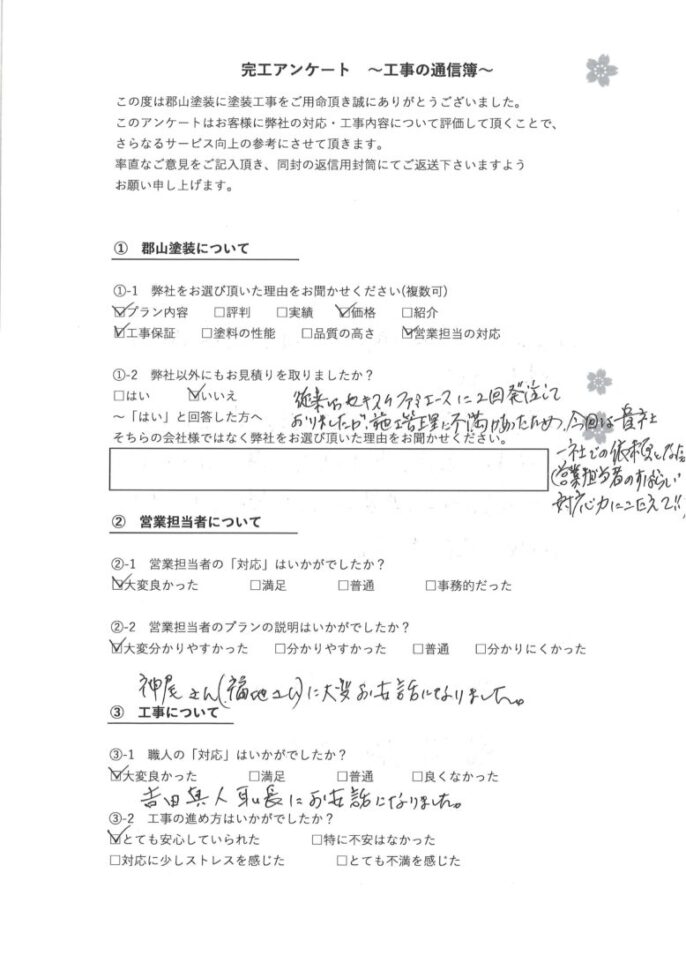 完工アンケート　～工事の通信簿～
この度は郡山塗装に塗装工事をご用命頂き誠にありがとうございました。
このアンケートはお客様に弊社の対応・工事内容について評価して頂くことで、
さらなるサービス向上の参考にさせて頂きます。
率直なご意見をご記入頂き、同封の返信用封筒にてご返送下さいますよう
お願い申し上げます。
①　郡山塗装について
①-1　弊社をお選び頂いた理由をお聞かせください(複数可)
☑プラン内容　□評判　□実績　☑価格　□紹介
☑工事保証　□塗料の性能　□品質の高さ　☑営業担当の対応
①-2　弊社以外にもお見積りを取りましたか？
□はい　☑いいえ
従来からセキスイファミエースに2回発注して
～「はい」と回答した方へ
おりましたが、施工管理に不満があったため、今回は貴社
そちらの会社様ではなく弊社をお選び頂いた理由をお聞かせください。
一社での依頼となった
(営業担当者のすばらしい
対応力にこたえて!!)
②　営業担当者について
②-1　営業担当者の「対応」はいかがでしたか？
☑大変良かった　□満足　□普通　□事務的だった
②-2　営業担当者のプランの説明はいかがでしたか？
☑大変分かりやすかった　□分かりやすかった　□普通　□分かりにくかった
神尾さん(福地さん)に大変お世話になりました。
③　工事について
③-1　職人の「対応」はいかがでしたか？
☑大変良かった　□満足　□普通　□良くなかった
吉田 職長にお世話になりました。
③-2　工事の進め方はいかがでしたか？
☑とても安心していられた　□特に不安はなかった
□対応に少しストレスを感じた　□とても不満を感じた